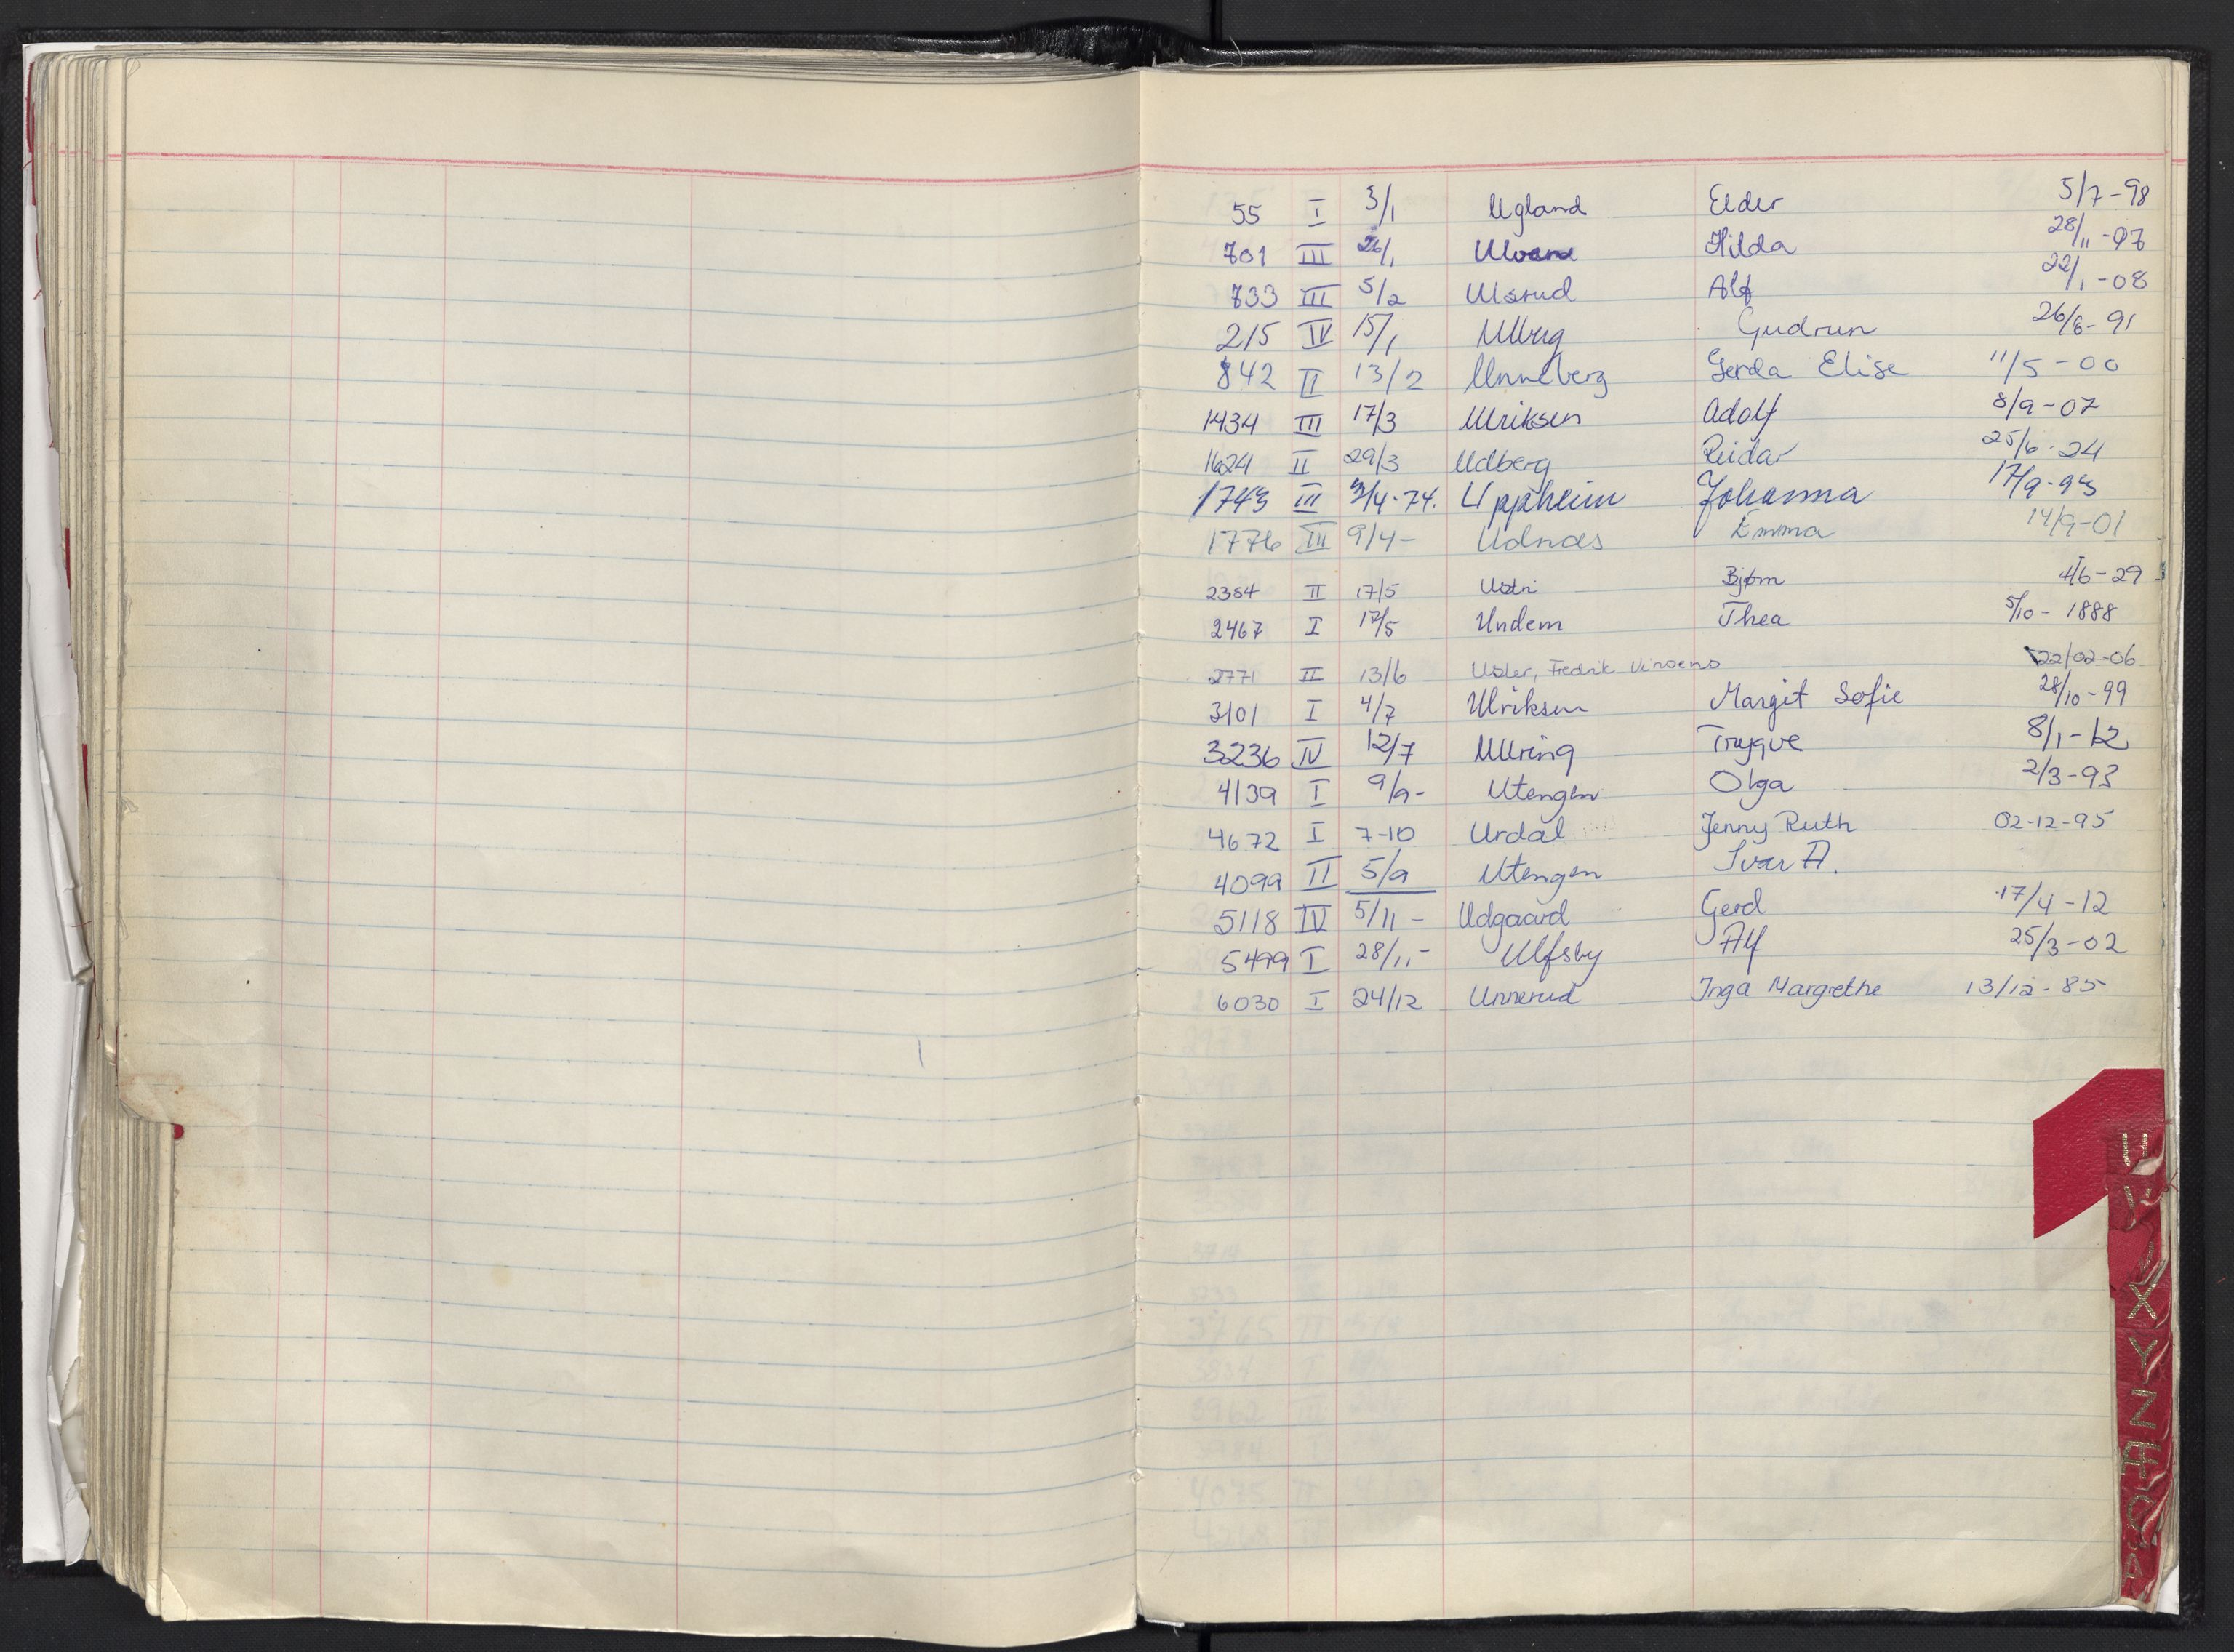 55 I 3/1 Ugland Elder 5/7-98
701 III 26/1 Hilda 28/11-07
733 III 5/2 Ulsrud Alf 22/1-08
215 IV 15/1 Ulberg Gudrun 26/6-91
842 II 13/2 Unneberg Gerda Elise 11/5-00
1434 III 17/3 Ulriksen Adolf 8/9-07
1624 II 29/3 Udberg Reidar 25/6-24
1743 III 3/4-74. Uppheim Johanna 17/9-93
1776 III 9/4- Udnæs Emma 14/9-01
2384 II 17/5 Ustri Bjørn 4/6-29
2467 I 17/5 Undem Thea 5/10-1888
2771 II 13/6 Usler, Fredrik Vinsens 22/02-06
3101 I 4/7 Ulriksen Margit Sofie 28/10-99
3236 IV 12/7 Ullring Trygve 8/1-12
4139 I 9/9- Utengen Olga 2/3-93
4672 I 7-10 Urdal Jenny Ruth 02-12-95
4099 II 5/9 Utengen Ivar A.
5118 IV 5/11- Udgaard Gerd 17/4-12
5499 I 28/11- Ulfsby Alf 25/3-02
6030 I 24/12 Unnerud Inga Margrethe 13/12-85
U
V
X
Y
Z
Æ
Ø